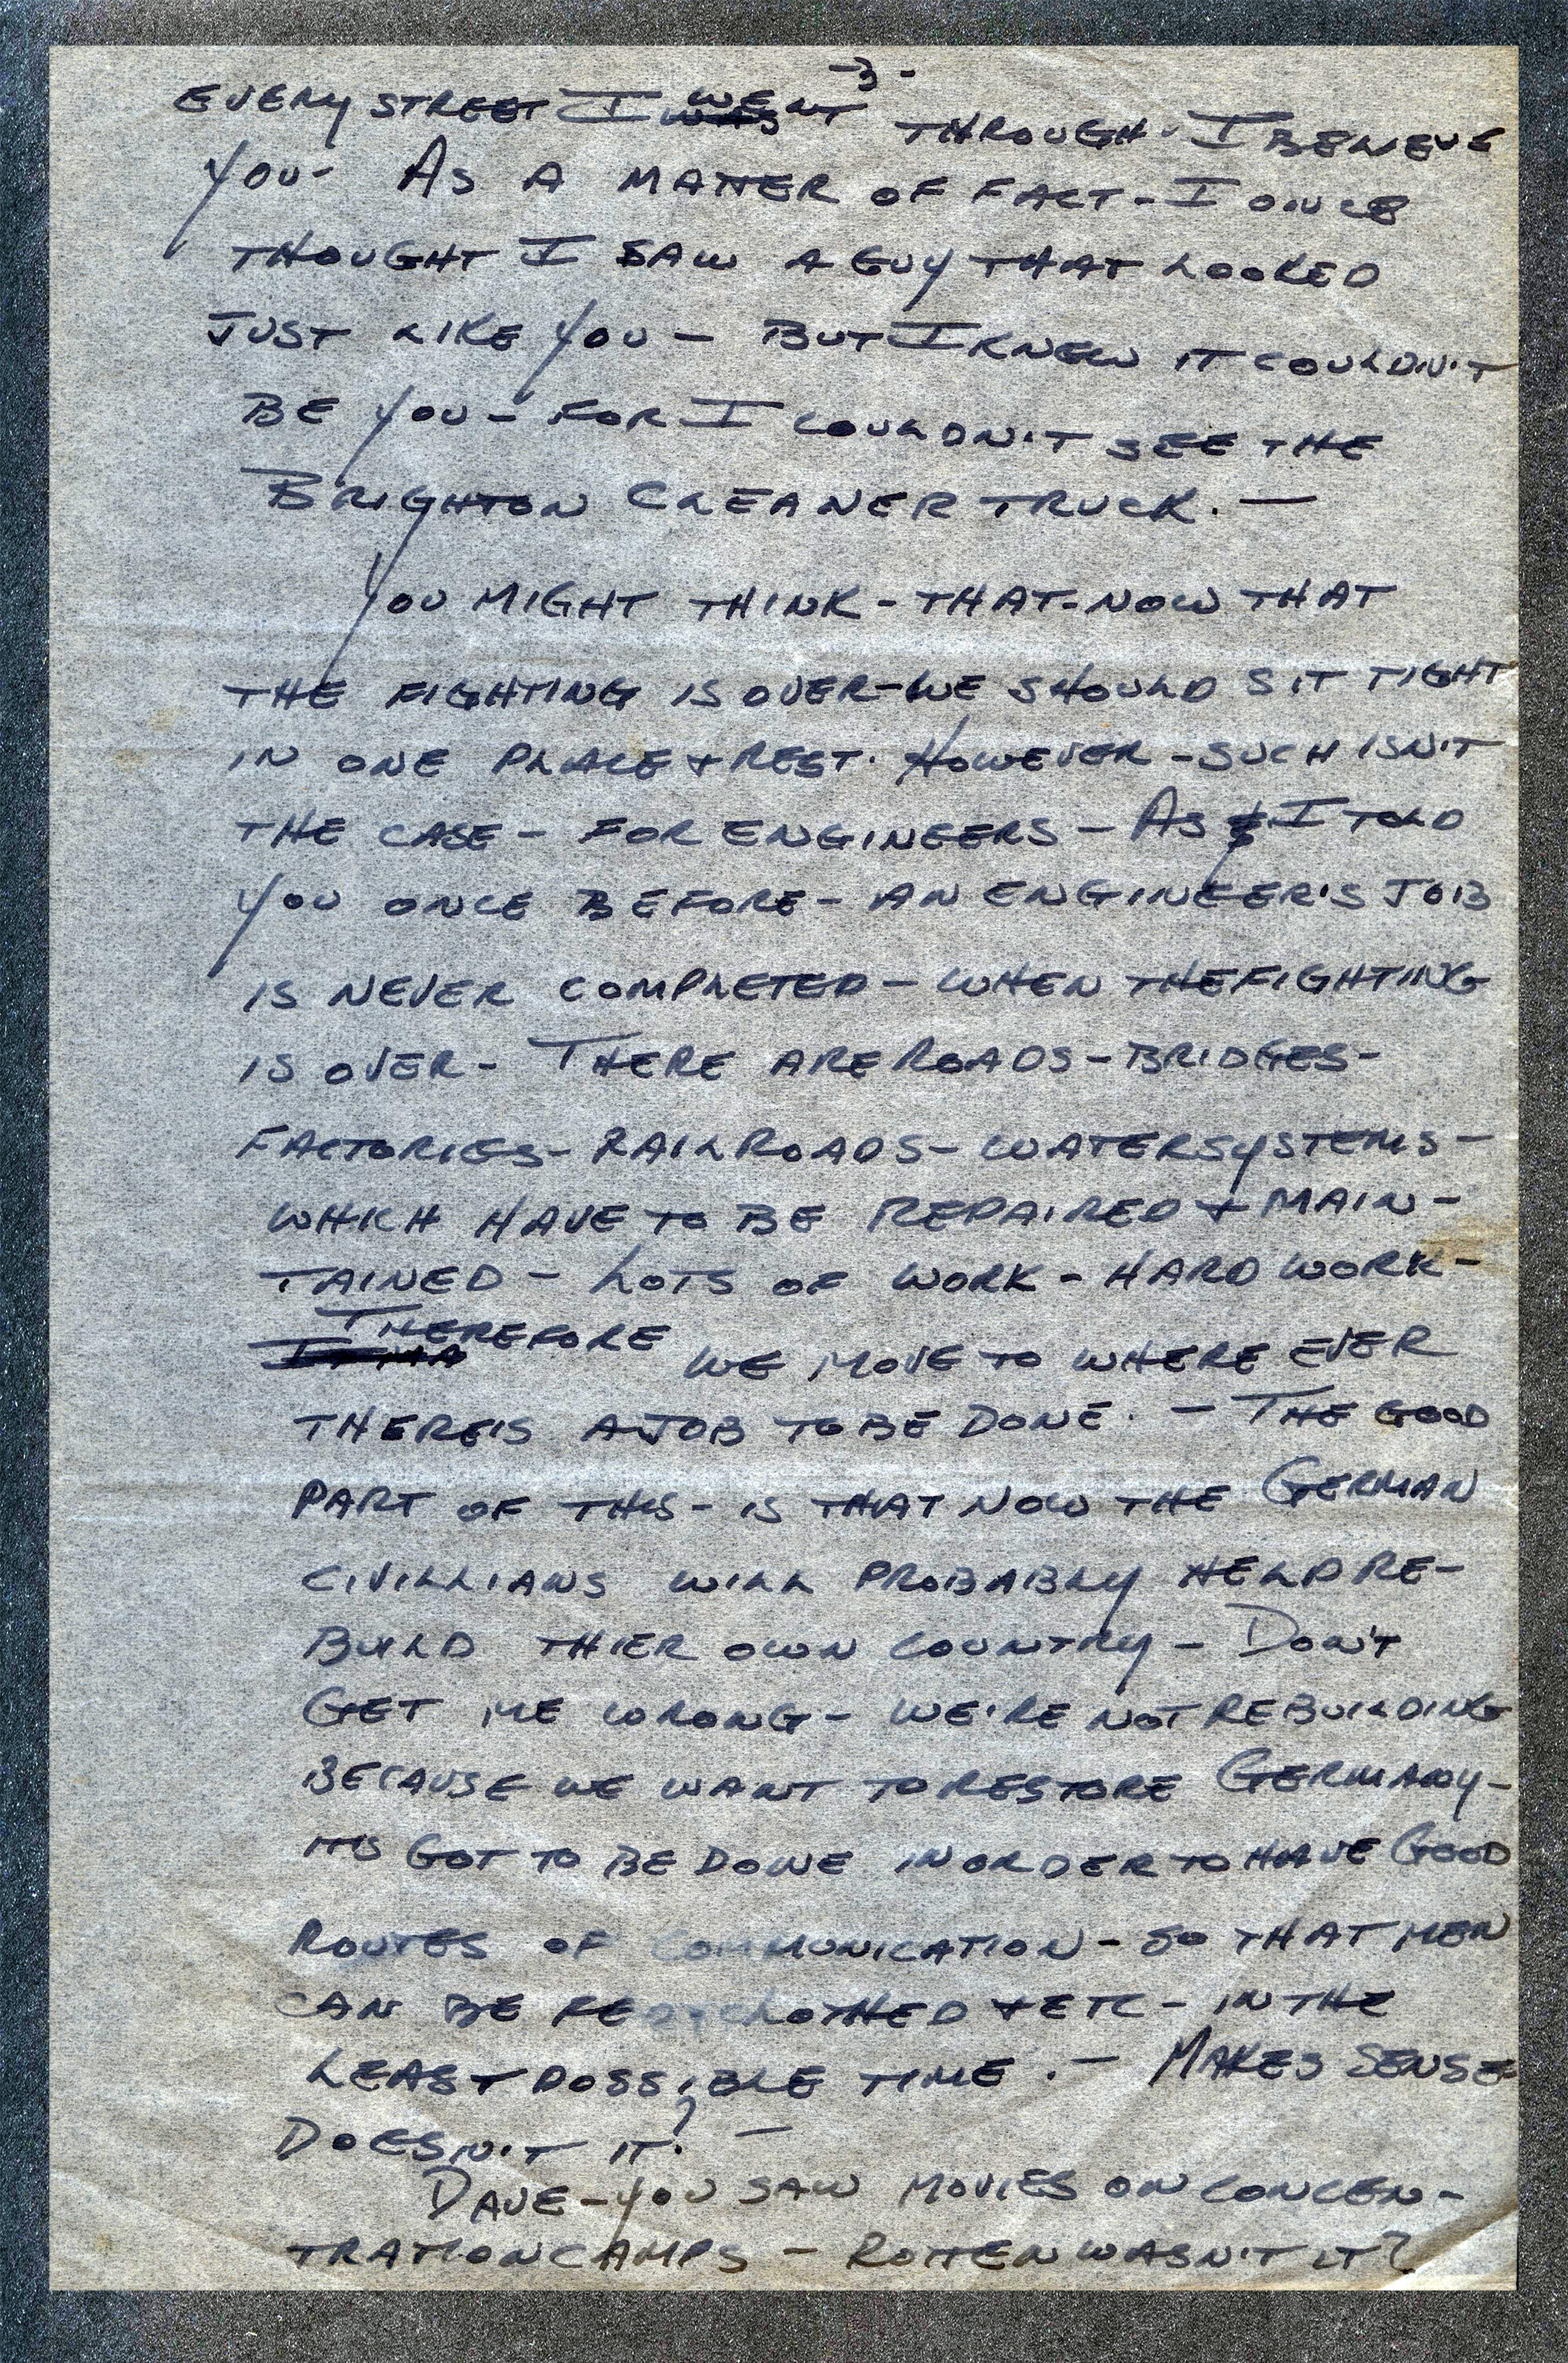 -3-
EVERY STREET I WENT THROUGH - I BELIEVE
YOU - AS A MATTER OF FACT - I ONCE
THOUGHT I SAW A GUY THAT LOOKED
JUST LIKE YOU - BUT I KNEW IT COULDN'T
BE YOU - FOR I COULDN'T SEE THE
BRIGHTON CLEANER TRUCK. —
YOU MIGHT THINK - THAT - NOW THAT
THE FIGHTING IS OVER - WE SHOULD SIT TIGHT
IN ONE PLACE & REST. HOWEVER - SUCH ISN'T
THE CASE - FOR ENGINEERS - AS I TOLD
YOU ONCE BEFORE - AN ENGINEER'S JOB
IS NEVER COMPLETED - WHEN THE FIGHTING
IS OVER - THERE ARE ROADS - BRIDGES -
FACTORIES - RAILROADS - WATER SYSTEMS -
WHICH HAVE TO BE REPAIRED & MAIN-
TAINED - LOTS OF WORK - HARD WORK -
THEREFORE WE MOVE TO WHERE EVER
THERE IS A JOB TO BE DONE. - THE GOOD
PART OF THIS - IS THAT NOW THE GERMAN
CIVILLIANS WILL PROBABLY HELP RE-
BUILD THIER OWN COUNTRY - DON'T
GET ME WRONG - WE'RE NOT REBUILDING
BECAUSE WE WANT TO RESTORE GERMANY -
IT'S GOT TO BE DONE IN ORDER TO HAVE GOOD
ROUTES OF COMMUNICATION - SO THAT MEN
CAN BE FED & CLOTHED & ETC - IN THE
LEAST POSSIBLE TIME. - MAKES SENSE
DOESN'T IT? —
DAVE - YOU SAW MOVIES ON CONCEN-
TRATION CAMPS - ROTTEN WASN'T IT?